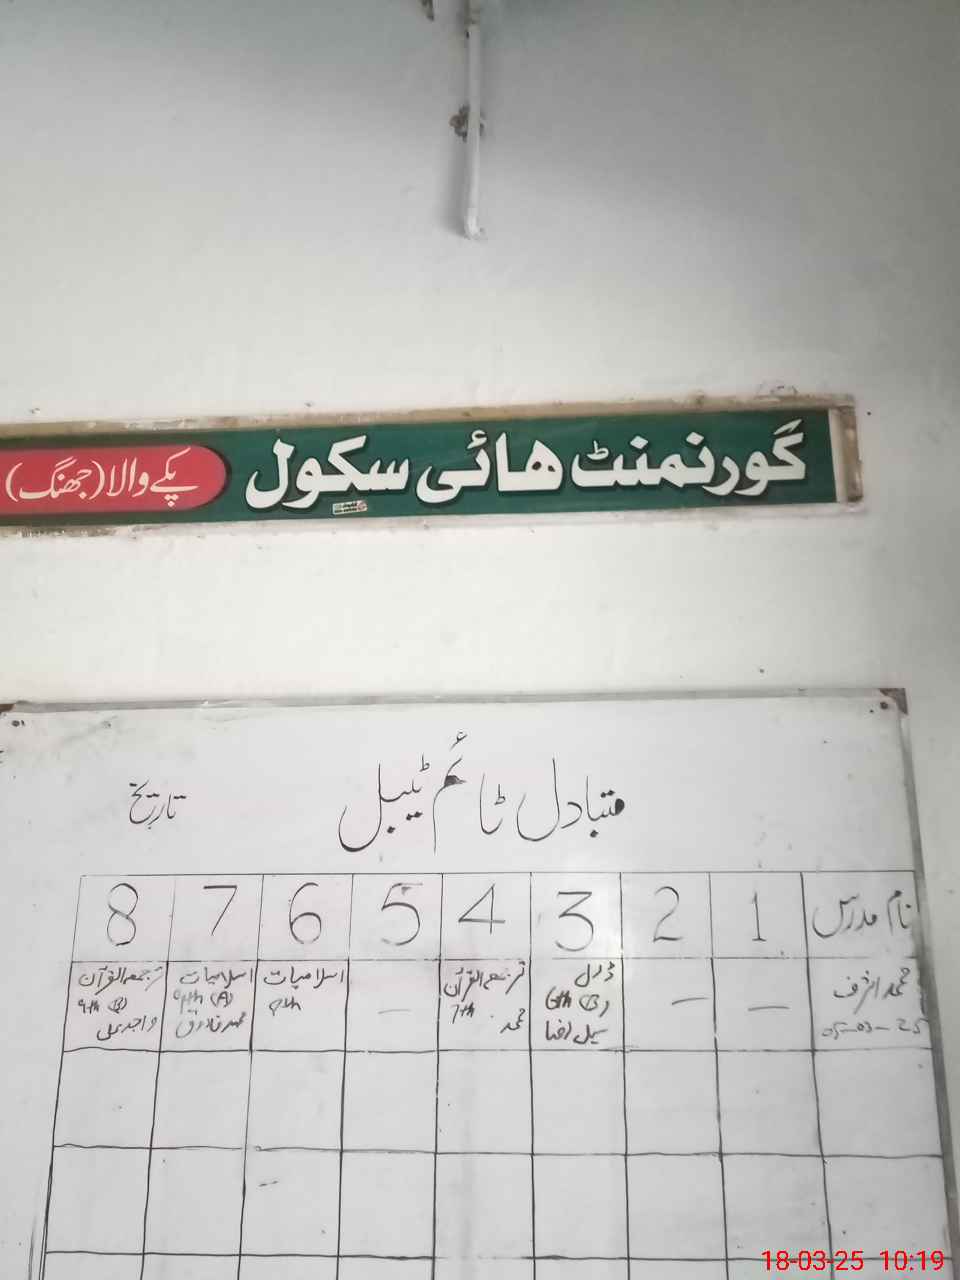 گورنمنٹ ہائی سکول پکے والا (جھنگ)
متبادل ٹائم ٹیبل
تاریخ
نام مدرس 1 2 3 4 5 6 7 8
محمد اشرف
05-03-25
—
—
ڈرل
6th (B)
ترجمہ القرآن
7th
محمد
—
اسلامیات
اسلامیات
9th (A)
ترجمہ القرآن
9th (B)
واجد علی
18-03-25 10:19